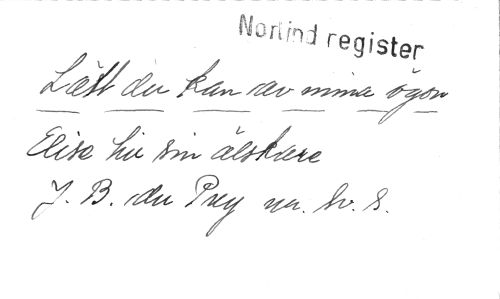 Norlind register
Lätt du kan av mina ögon
Elise hie sin älskare
J. B. du Puy nr. hr. s.